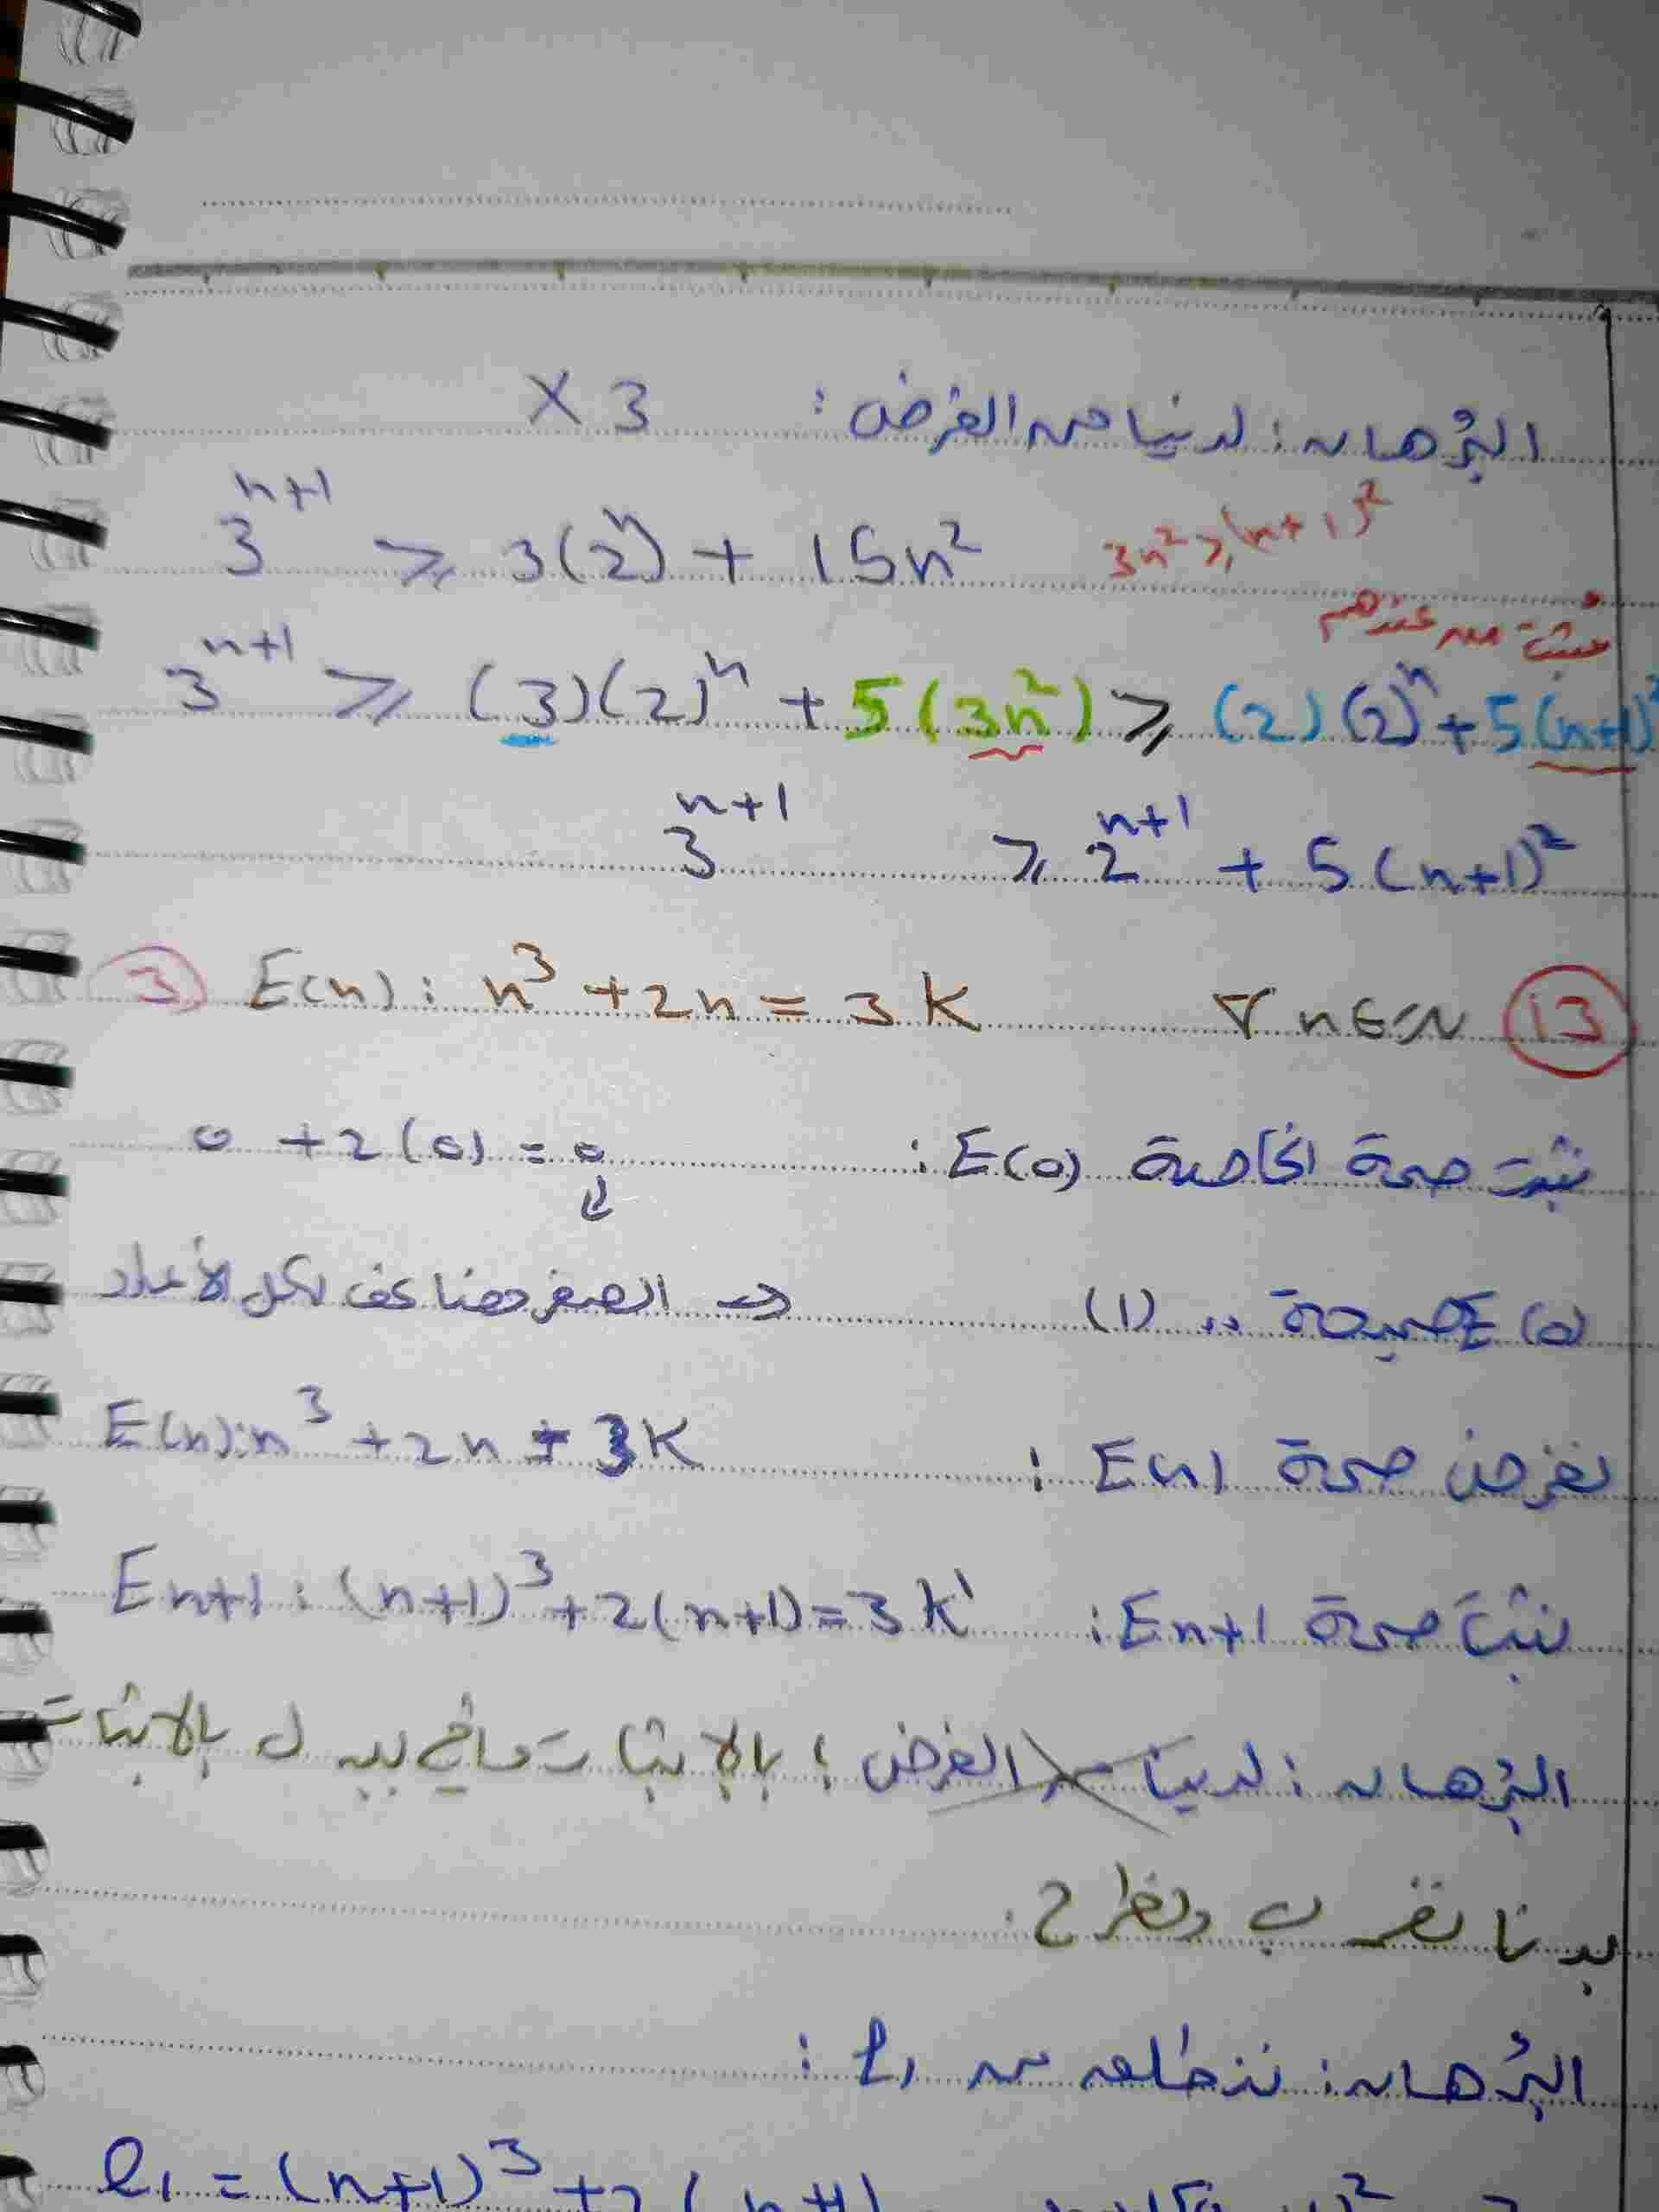 البُرهان: لدينا من الفرض: × 3
3^{n+1} ⩾ 3(2^n) + 15n² 3n² ⩾ (n+1)²
مثبت من عندهم
3^{n+1} ⩾ (3)(2)^n + 5(3n²) ⩾ (2)(2)^n + 5(n+1)²
3^{n+1} ⩾ 2^{n+1} + 5(n+1)²
③ E(n): n³ + 2n = 3K ∀ n ∈ N ⑬
نثبت صحة الخاصية E(0): 0 + 2(0) = 0
E(0) صحيحة .. (1) ⇒ الصفر مضاعف لكل الأعداد
نفرض صحة E(n): E(n): n³ + 2n = 3K
نثبت صحة En+1: En+1: (n+1)³ + 2(n+1) = 3K'
البُرهان: لدينا من الفرض: بالإثبات مافي بدل بالاثبات
بدنا نضرب ونطرح.
البُرهان: ننطلق من l₁:
l₁ = (n+1)³ + 2(n+1)